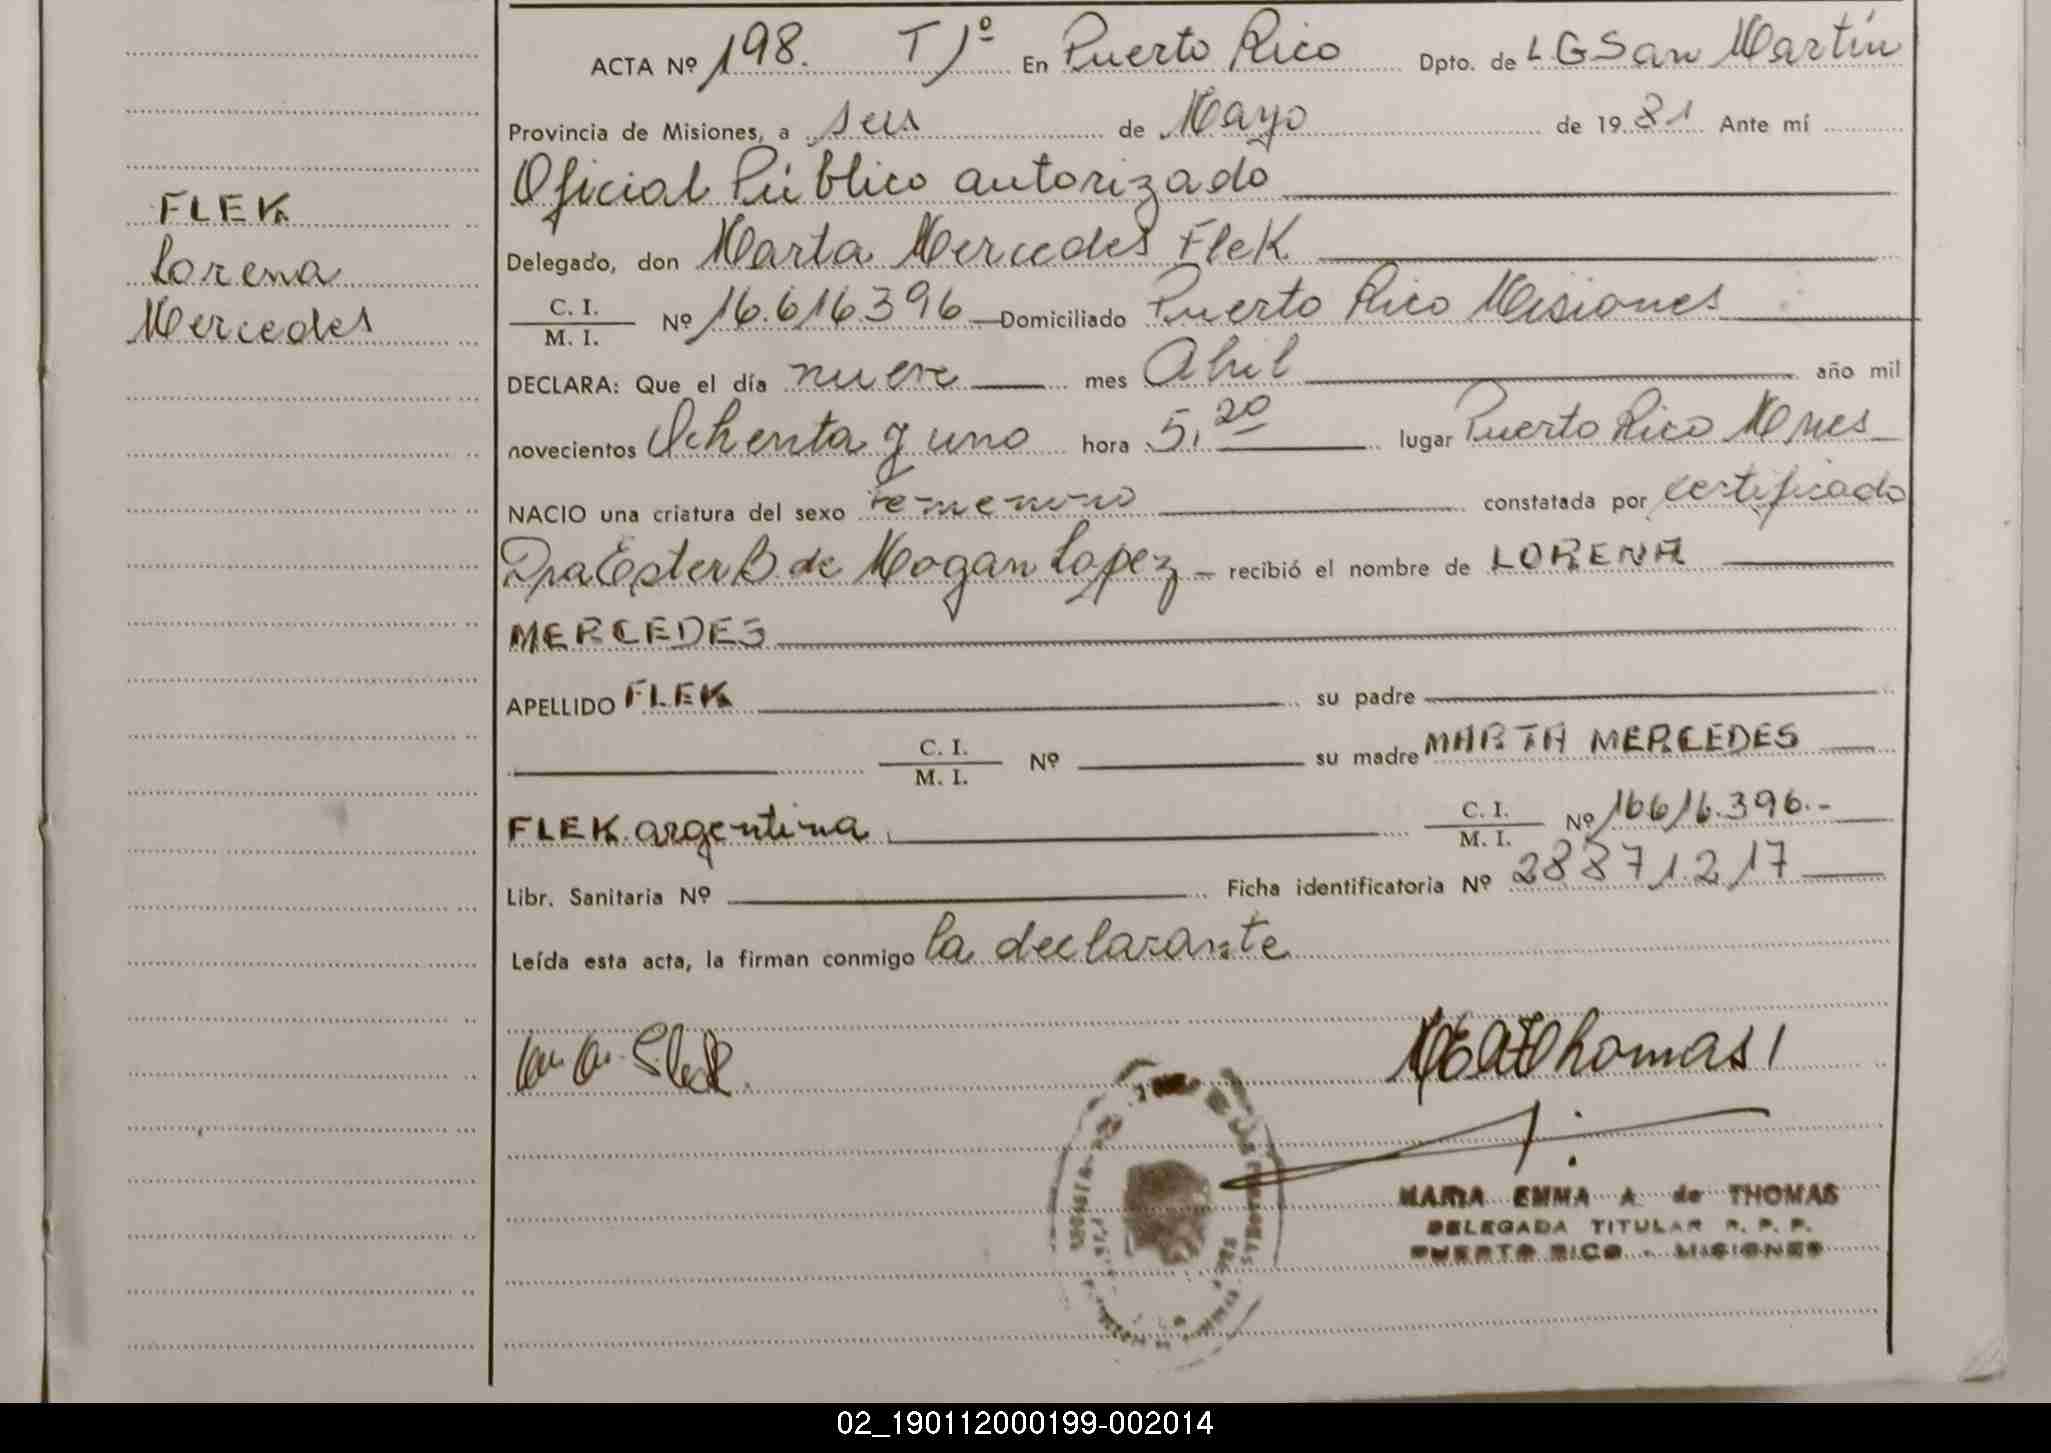 ACTA Nº 198. T 1º En Puerto Rico Dpto. de L G San Martín
Provincia de Misiones, a seis de Mayo de 1981 Ante mí
Oficial Público autorizado
FLEK
Delegado, don Marta Mercedes Flek
Lorena
C. I.
M. I.
Nº 16.616.396 Domiciliado Puerto Rico Misiones
Mercedes
DECLARA: Que el día nueve mes Abril año mil
novecientos Ochenta y uno hora 5,20 lugar Puerto Rico Mnes
NACIO una criatura del sexo femenino constatada por certificado
Dra Ester B. de Mogan Lopez recibió el nombre de LORENA
MERCEDES
APELLIDO FLEK su padre
C. I.
M. I.
Nº su madre MARTA MERCEDES
FLEK argentina C. I.
M. I.
Nº 16616.396.-
Libr. Sanitaria Nº Ficha identificatoria Nº 28871217
Leída esta acta, la firman conmigo la declarante
MARIA EMMA A. de THOMAS
DELEGADA TITULAR R. P. P.
PUERTO RICO - MISIONES
02_190112000199-002014